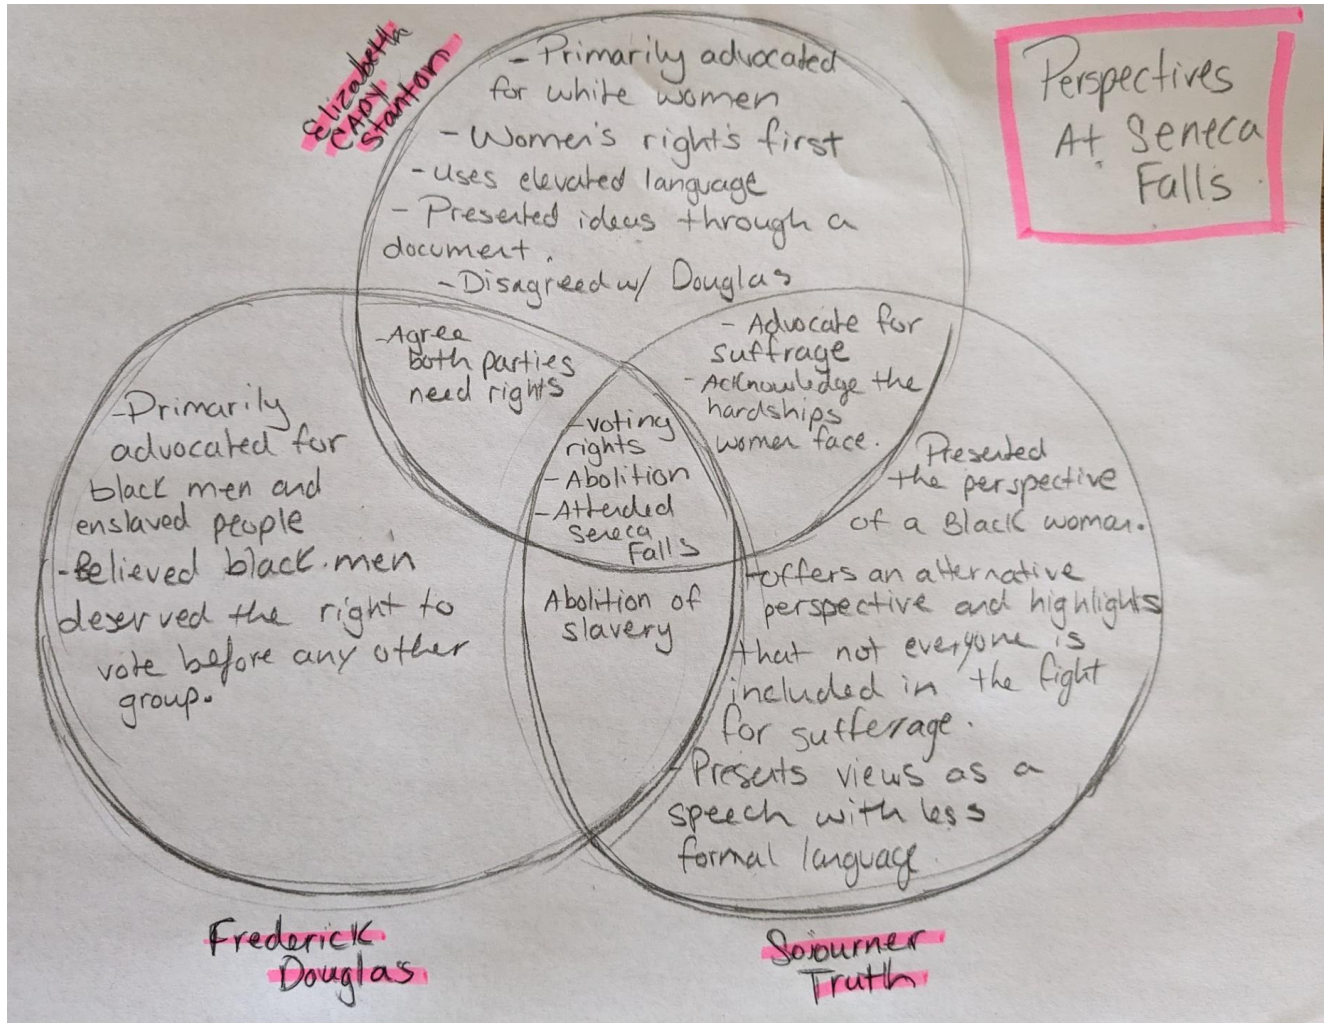 Perspectives
At Seneca
Falls
Elizabeth
CADY
Stanton
- Primarily advocated
for white women
- Women's right's first
- uses elevated language
- Presented ideas through a
document.
- Disagreed w/ Douglas
- Agree
both parties
need rights
- Advocate for
suffrage
- Acknowledge the
hardships
women face.
- voting
rights
- Abolition
- Attended
Seneca
Falls
- Primarily
advocated for
black men and
enslaved people
- Believed black men
deserved the right to
vote before any other
group.
Abolition of
slavery
Presented
the perspective
of a Black woman.
- offers an alternative
perspective and highlights
that not everyone is
included in the fight
for sufferage.
- Presents views as a
speech with less
formal language.
Frederick
Douglas
Sojourner
Truth